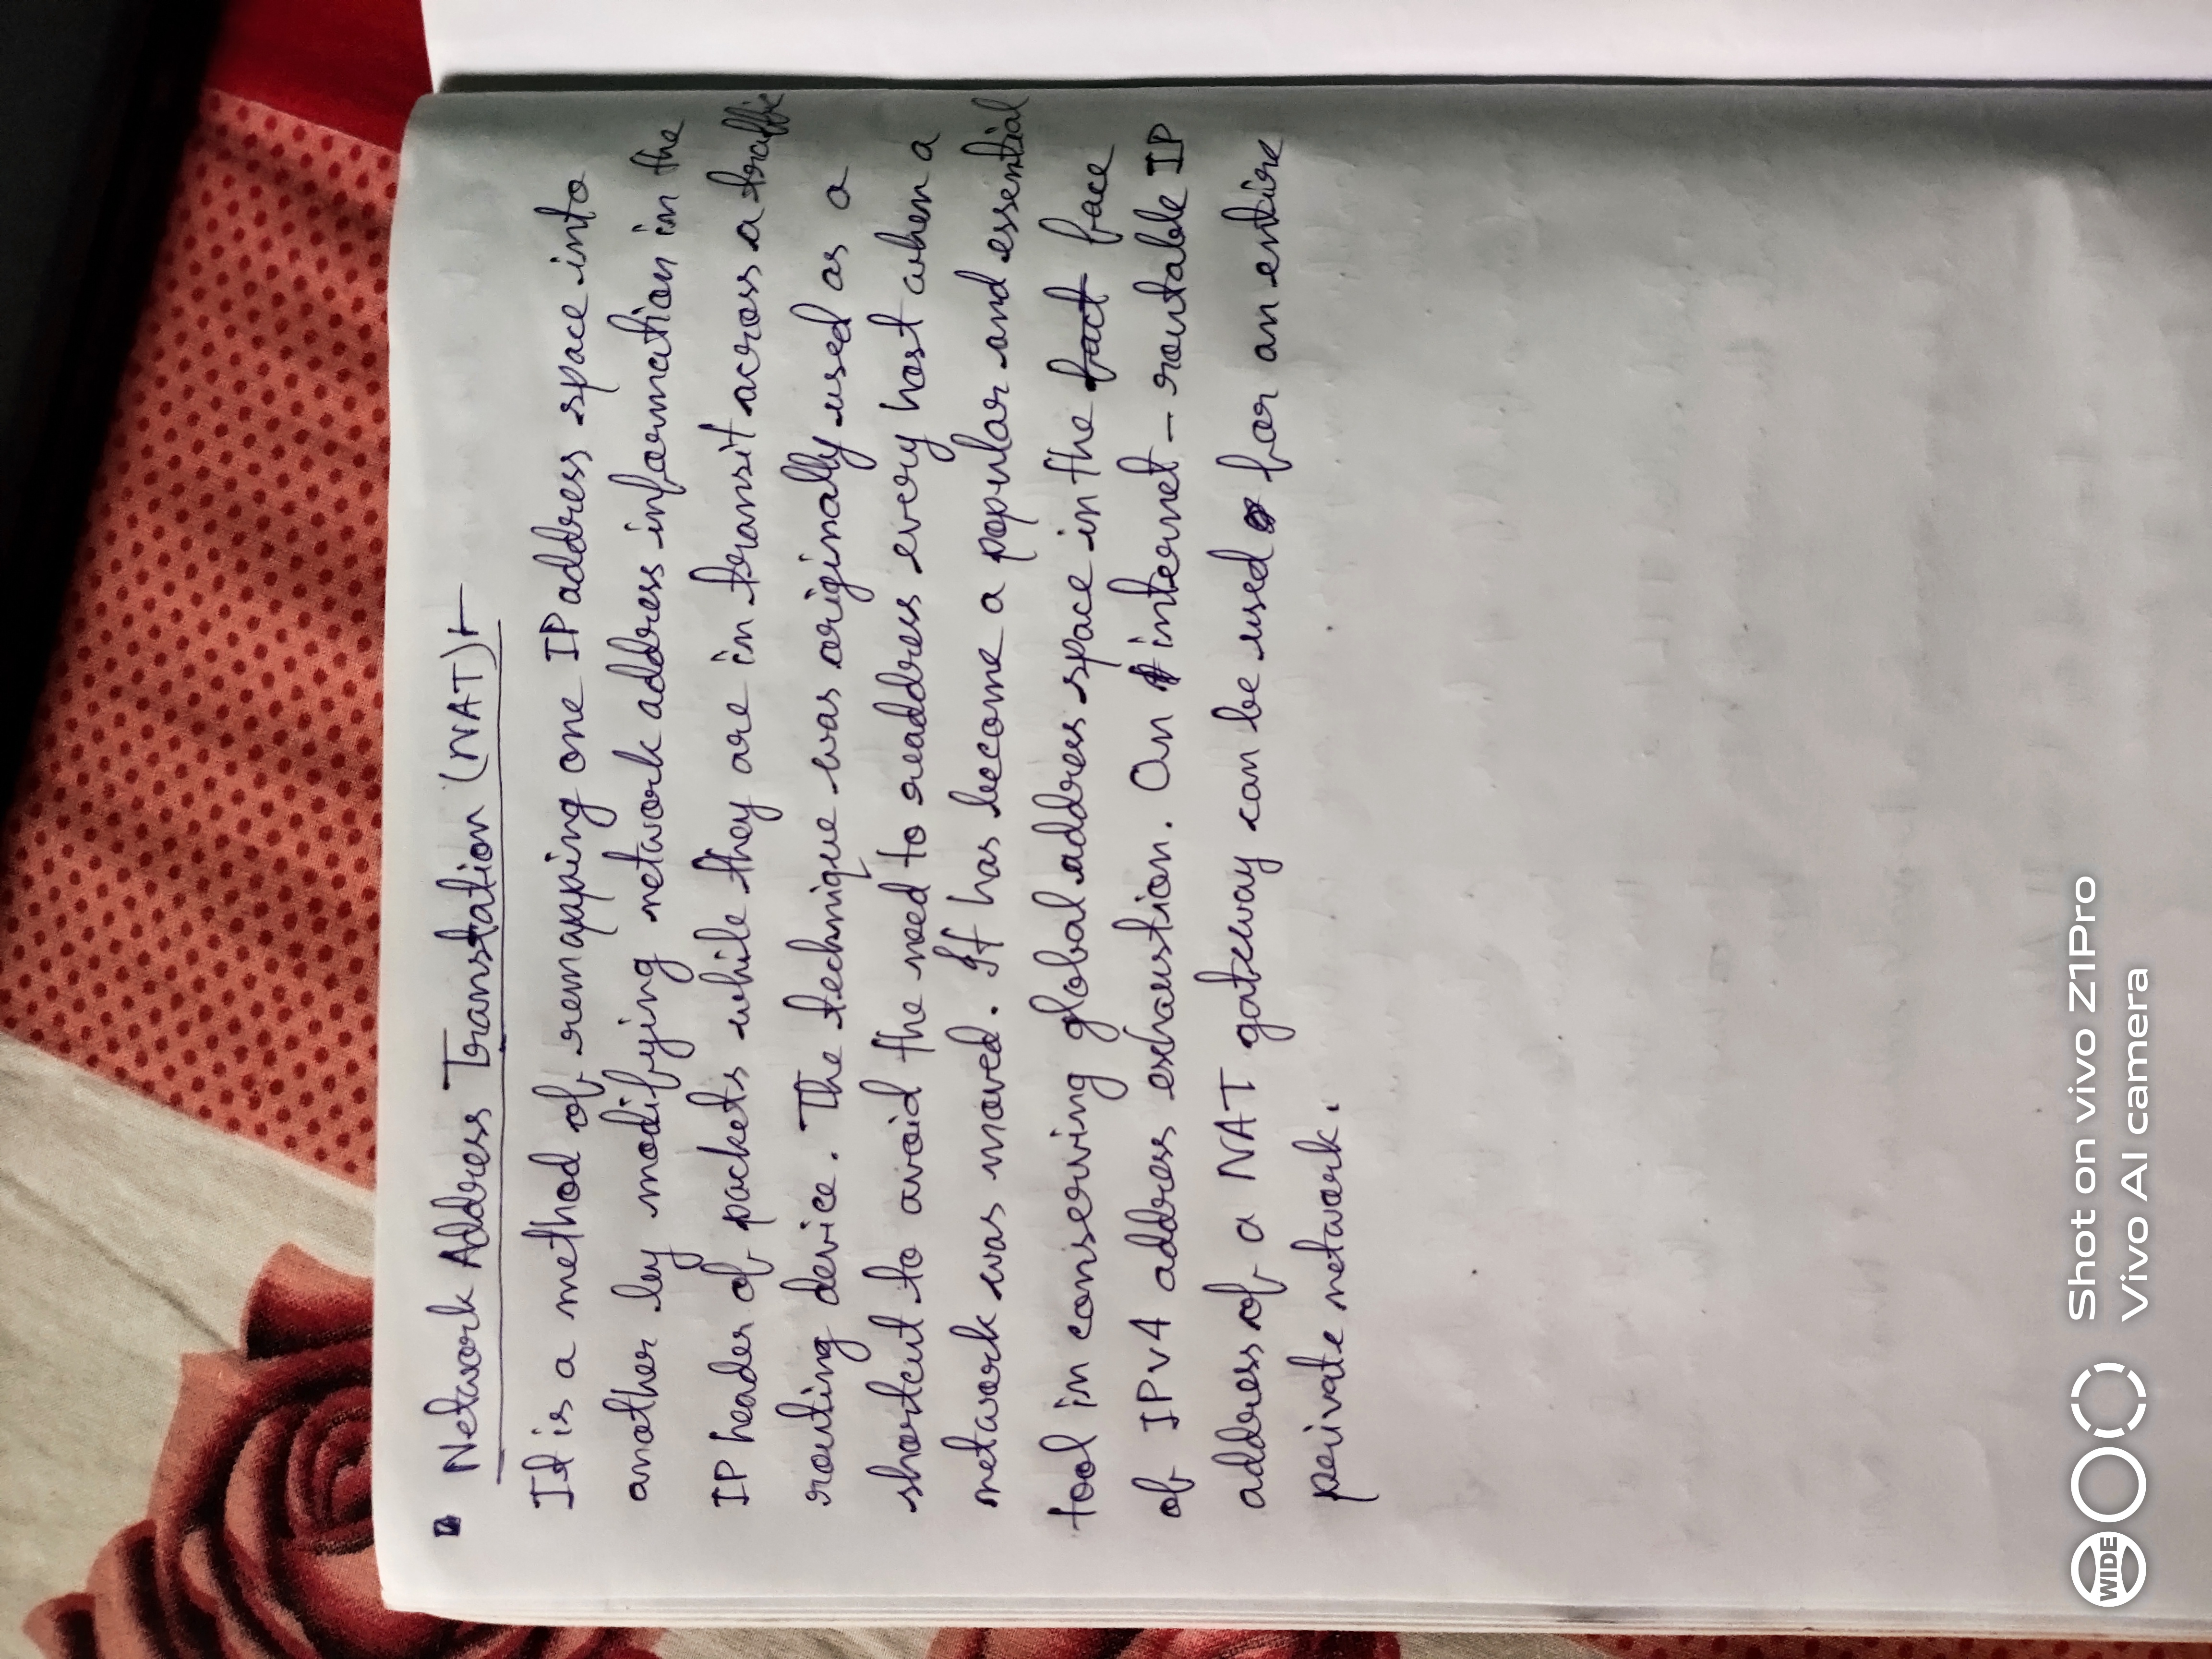 Network Address Transtation (NAT):-
It is a method of remapping one IP address space into
another by modifying network address information in the
IP header of packets while they are in transit across a traffic
routing device. The technique was originally used as a
shortcut to avoid the need to readdress every host when a
network was moved. It has become a popular and essential
tool in conserving global address space in the fact face
of IPv4 address exhaustion. On internet - routable IP
address of a NAT gateway can be used for an entire
private network.
WIDE
Shot on vivo Z1Pro
Vivo AI camera